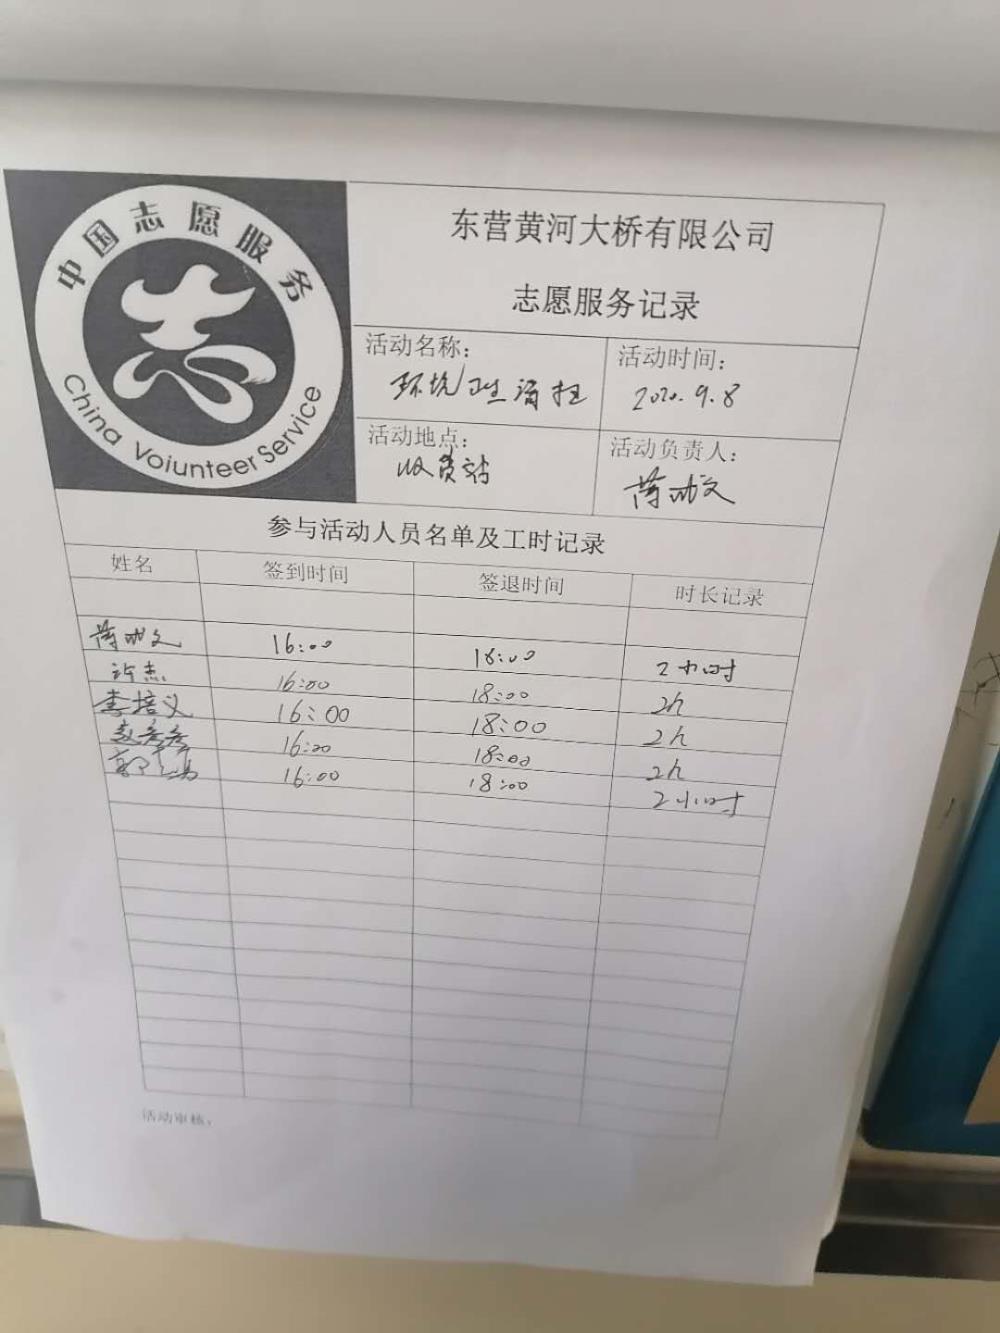 中国志愿服务
China Voiunteer Service
东营黄河大桥有限公司
志愿服务记录
活动名称：
环境卫生清扫
活动时间：
2020.9.8
活动地点：
收费站
活动负责人：
参与活动人员名单及工时记录
姓名 签到时间 签退时间 时长记录
16:00 18:00 2小时
许杰 16:00 18:00 2h
李培义 16:00 18:00 2h
16:00 18:00 2h
16:00 18:00 2小时
活动审核：